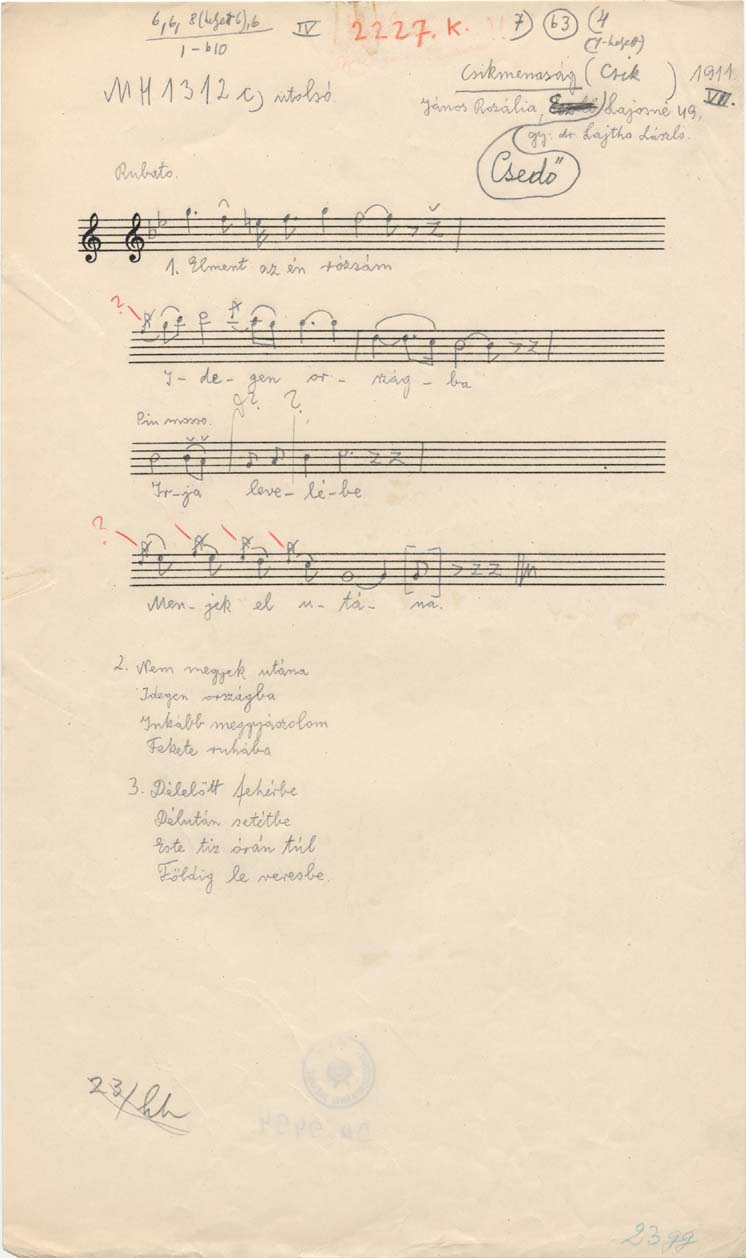 6, 6, 8 (helyett 6), 6 IV 2227. K. 7) (63) (4
1-b10 (1-helyett)
MH 1312 c) utolsó. Csikmenaság (Csik) 1911. VII.
János Rozália, Lajosné 49,
gy: dr. Lajtha László.
Csedő
Rubato.
1. Elment az én rózsám
?
I-de-gen or-szág-ba
Piu mosso.
Ir-ja leve-lé-be
?
Men-jek el u-tá-na.
2. Nem megyek utána
Idegen országba
Inkább meggyászolom
Fekete ruhába
3. Délelőtt fehérbe
Délután setétbe
Este tiz órán túl
Földig le veresbe.
23/hh
23gg